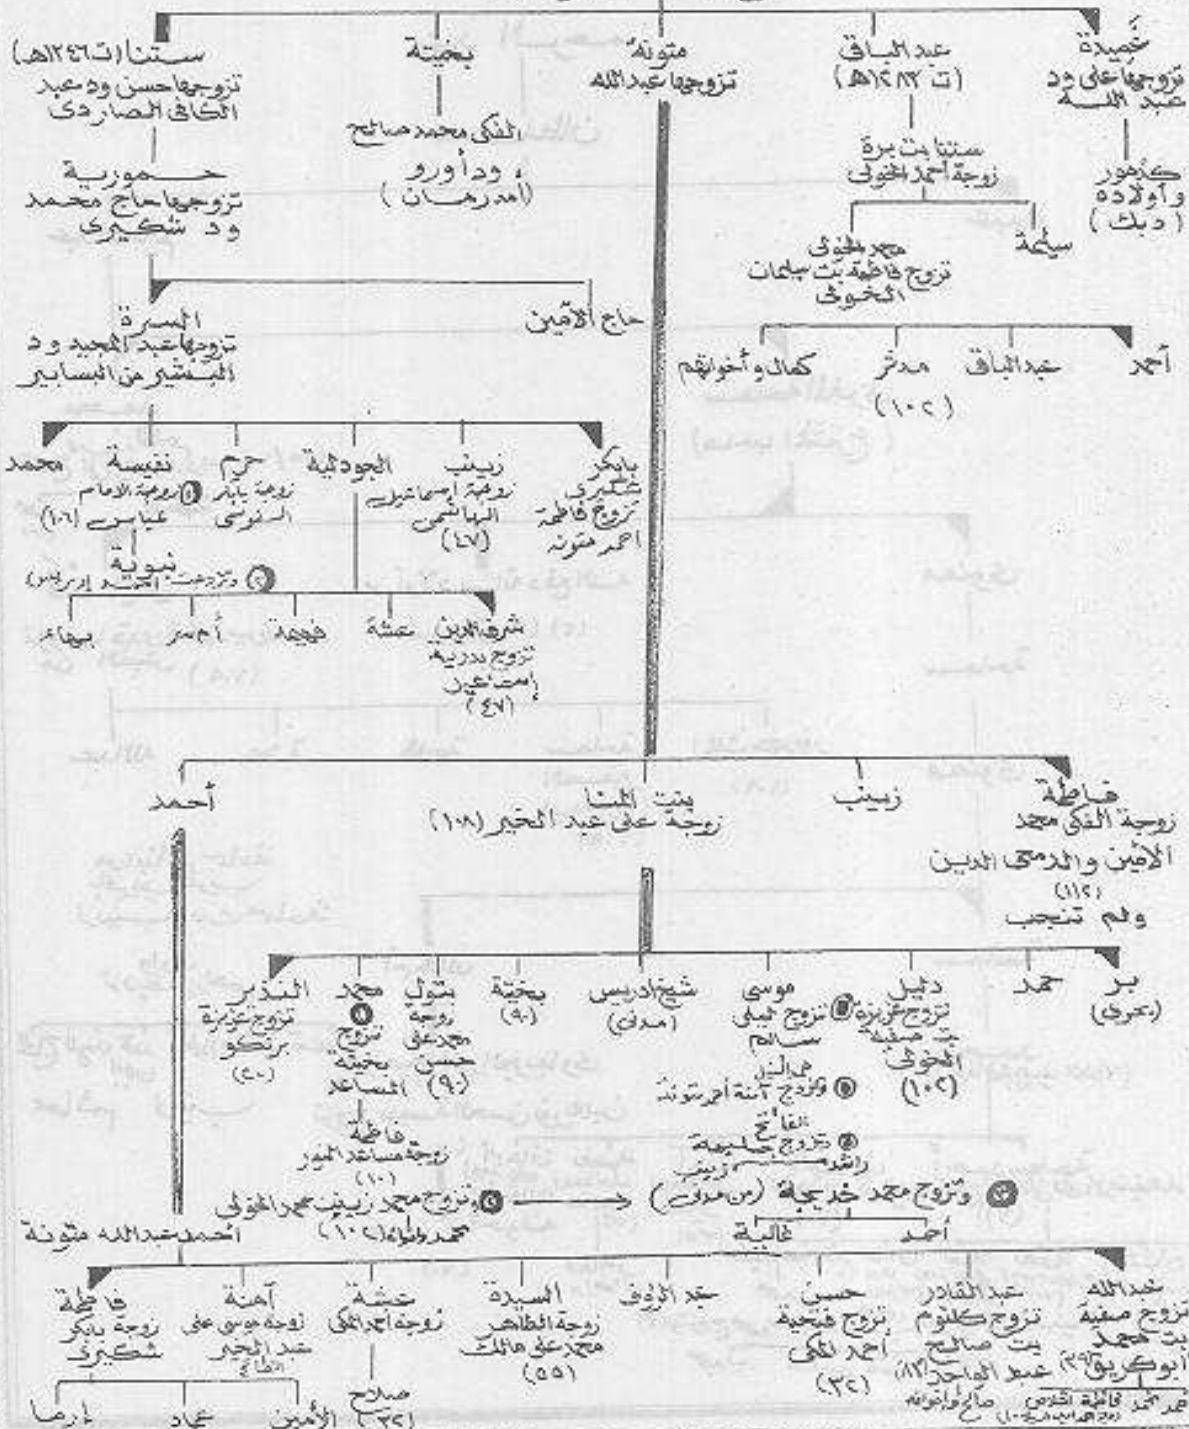 خميدة
تزوجها على ود
عبد الله
كدهور
وأولاده
(دبك)
عبد الباقى
(ت ١٢٨٣هـ)
ستنا بت برة
زوجة أحمد الخولى
سليمة
محمد الخولى
تزوج فاطمة بت سليمان
الخولى
متونة
تزوجها عبد الله
بخيتة
الفكى محمد صالح
ود أورو
(أمدرمان)
ستنا (ت ١٢٤٦هـ)
تزوجها حسن ود عبد
الكافى الصاردى
حمورية
تزوجها حاج محمد
ود شكيرى
أحمد
عبد الباقى
مدثر
(١٠٢)
كمال وأخواتهم
حاج الأمين
السرة
تزوجها عبد المجيد ود
البشير من البسابير
بابكر
شكيرى
تزوج فاطمة
احمد متونه
زينب
زوجة إسماعيل
الهاشمى
(٤٧)
الجودلية
حرم
زوجة بابكر
السنوسى
نفيسة
(١) زوجة الامام
عباس (١٠٦)
نبوية
(٢) وتزوجت
محمد
شرف الدين
تزوج بدرية
إسماعيل
(٤٧)
عشة
فهيمة
أحمد
بهاء
فاطمة
زوجة الفكى محمد
الأمين والد محى الدين
(١١٢)
ولم تنجب
زينب
بنت المنا
زوجة على عبد الخير (١٠٨)
أحمد
بر
(بحرى)
حمد
دليل
تزوج عزيزة
بت صفية
الخولى
(١٠٢)
موسى
(١) تزوج ليلى
سالم
(٢) وتزوج آمنة أحمد متونة
الفاتح
(٣) وتزوج حليمة
راشد زينب
شيخ ادريس
(مدنى)
بخيتة
(٩٠)
بتول
زوجة
محمد على
حسن
(٩٠)
محمد
(١) تزوج
بخيتة
المساعد
فاطمة
زوجة مساعد النور
(١٠)
النذير
تزوج عزيزة
برتكو
(٢٠)
(٢) وتزوج محمد زينب محمد الخولى
(١٠٢)
(٣) وتزوج محمد خديجة (من مدنى)
أحمد
غالية
أحمد عبد الله متونة
عبد الله
تزوج صفية
بت محمد
أبوكريق (٣٩)
عبد القادر
تزوج كلثوم
بت صالح
عبد الواحد (٨٣)
صالح وأخواته
حسن
تزوج فتحية
أحمد المكى
(٣٢)
عبد الرؤوف
السيدة
زوجة الطاهر
محمد على مالك
(٥٥)
عشة
زوجة أحمد المكى
صلاح
(٣٢)
آمنة
زوجة موسى على
عبد الخير
الفاتح
فاطمة
زوجة بابكر
شكيرى
الأمين
عماد